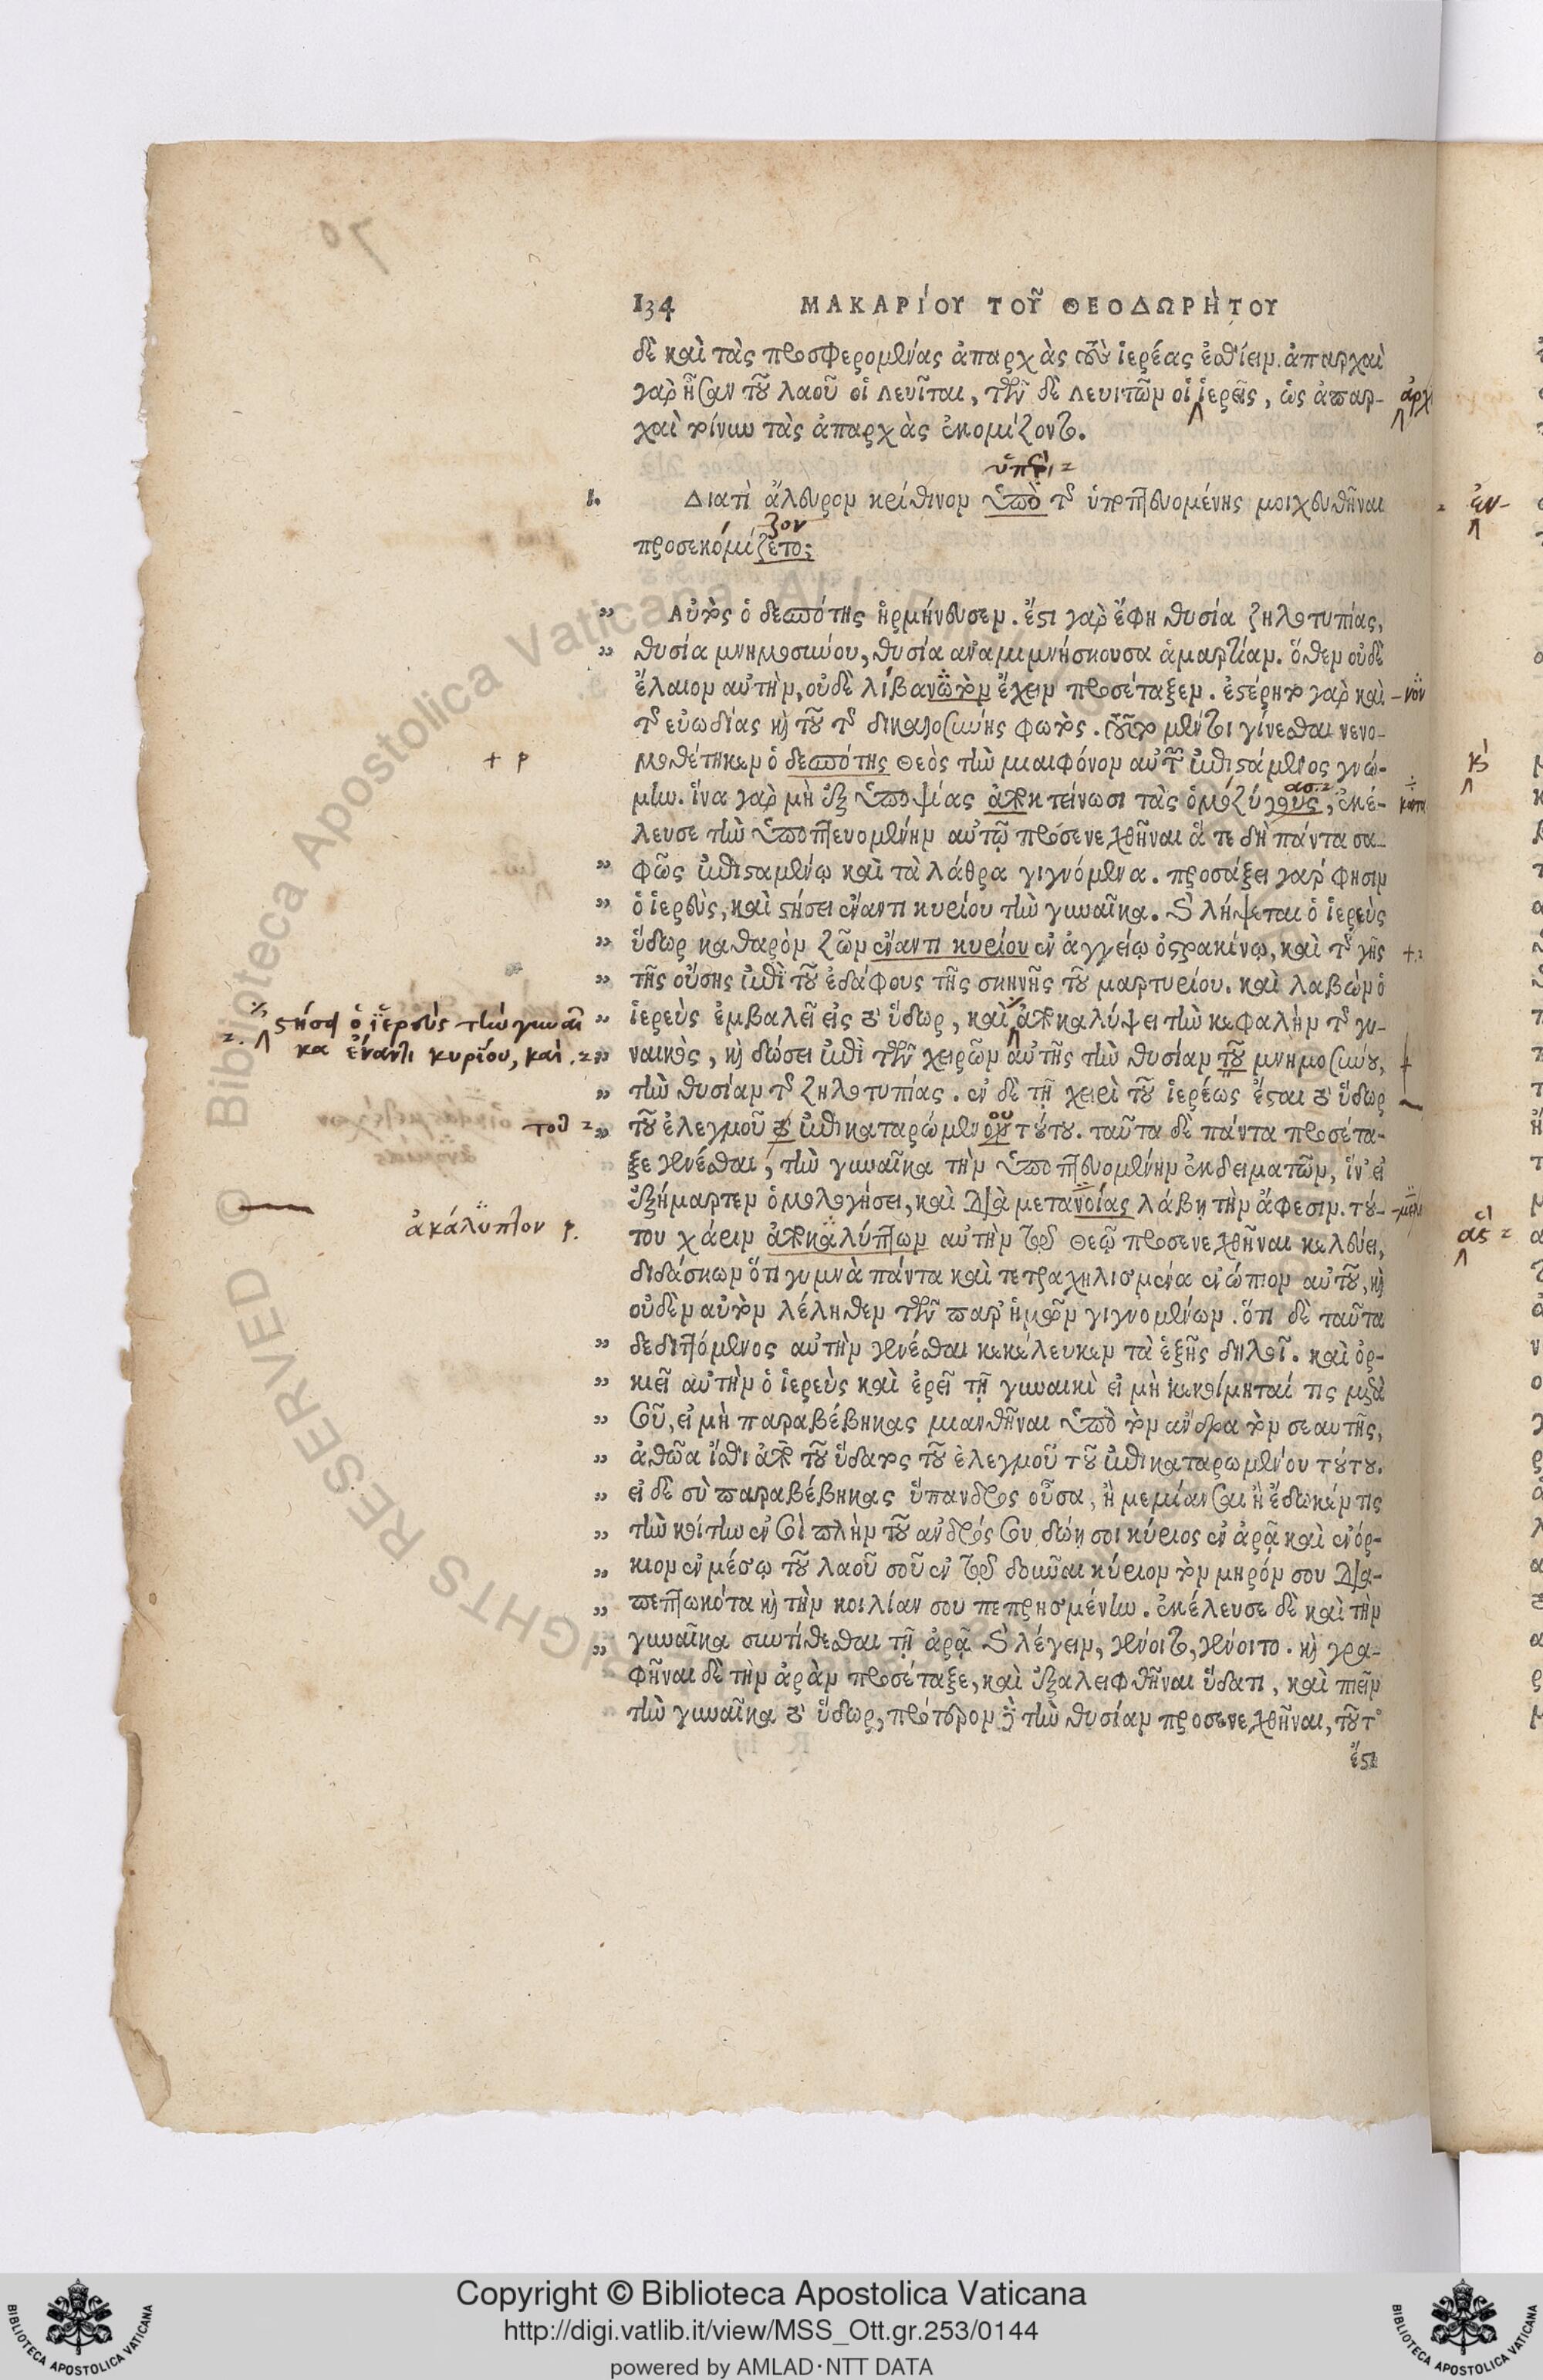 134 ΜΑΚΑΡίΟΥ ΤΟΥ͂ ΘΕΟΔΩΡΉΤΟΥ
δὲ καὶ τὰς προσφερομένας ἀπαρχὰς τοὺς ἱερέας ἐσθίειν. ἀπαρχαὶ
γὰρ ἦσαν τοῦ λαοῦ οἱ λευῖται, τῶν δὲ λευιτῶν οἱ ἱερεῖς, ὡς ἀπαρ-
χαὶ τοίνυν τὰς ἀπαρχὰς ἐκομίζοντο.
ὑπὲρ
1. Διατὶ ἄλευρον κρίθινον ὑπὸ τῆς ὑποπτευομένης μοιχευθῆναι
ζον
προσεκόμίζετο;
" Αὐτὸς ὁ δεσπότης ἡρμήνευσεν. ἔστι γὰρ ἔφη θυσία ζηλοτυπίας,
" θυσία μνημοσύνου, θυσία ἀναμιμνήσκουσα ἁμαρτίαν. ὅθεν οὐδὲ
ἔλαιον αὐτὴν, οὐδὲ λίβανωτὸν ἔχειν προσέταξεν. ἐστέρητο γὰρ καὶ
τῆς εὐωδίας καὶ τοῦ τῆς δικαιοσύνης φωτός. τοῦτο μέντοι γίνεσθαι νενο-
+ p
μοθέτηκεν ὁ δεσπότης Θεὸς τὴν μιαιφόνον αὐτῶν ἐπιστάμενος γνώ-
μην. ἵνα γὰρ μὴ ἐξ ὑποψίας ἀποκτείνωσι τὰς ὁμοζύγους, ἐκέ-
λευσε τὴν ὑποπτευομένην αὐτῷ προσενεχθῆναι ἅ τε δὴ πάντα σα-
" φῶς ἐπισταμένῳ καὶ τὰ λάθρα γιγνόμενα. προσάξει γάρ φησιν
" ὁ ἱερεὺς, καὶ στήσει ἔναντι κυρίου τὴν γυναῖκα. καὶ λήψεται ὁ ἱερεὺς
" ὕδωρ καθαρὸν ζῶν ἔναντι κυρίου ἐν ἀγγείῳ ὀστρακίνῳ, καὶ τῆς γῆς
" τῆς οὔσης ἐπὶ τοῦ ἐδάφους τῆς σκηνῆς τοῦ μαρτυρίου. καὶ λαβὼν ὁ
στήσει ὁ ἱερεὺς τὴν γυναῖ
" ἱερεὺς ἐμβαλεῖ εἰς τὸ ὕδωρ, καὶ ἀποκαλύψει τὴν κεφαλὴν τῆς γυ-
κα ἐνάντι κυρίου, καὶ
" ναικὸς, καὶ δώσει ἐπὶ τῶν χειρῶν αὐτῆς τὴν θυσίαν τοῦ μνημοσύνου,
" τὴν θυσίαν τῆς ζηλοτυπίας. ἐν δὲ τῇ χειρὶ τοῦ ἱερέως ἔσται τὸ ὕδωρ
τοῦ
" τοῦ ἐλεγμοῦ τὸ ἐπικαταρώμενον τούτου. ταῦτα δὲ πάντα προσέτα-
ξε γενέσθαι, τὴν γυναῖκα τὴν ὑποπτευομένην ἐκδειματῶν, ἵν' εἰ
ἐξήμαρτεν ὁμολογήσει, καὶ διὰ μετανοίας λάβῃ τὴν ἄφεσιν. τού-
ἀκάλυπτον p.
του χάριν ἀποκαλύπτων αὐτὴν τῷ Θεῷ προσενεχθῆναι κελεύει,
διδάσκων ὅτι γυμνὰ πάντα καὶ τετραχηλισμένα ἐνώπιον αὐτοῦ, καὶ
οὐδὲν αὐτὸν λέληθεν τῶν παρ' ἡμῶν γιγνομένων. ὅτι δὲ ταῦτα
" δεδιττόμενος αὐτὴν γενέσθαι κεκέλευκεν τὰ ἑξῆς δηλοῖ. καὶ ὁρ-
" κιεῖ αὐτὴν ὁ ἱερεὺς καὶ ἐρεῖ τῇ γυναικὶ εἰ μὴ κεκοίμηταί τις μετὰ
" σοῦ, εἰ μὴ παραβέβηκας μιανθῆναι ὑπὸ τὸν ἄνδρα τὸν σεαυτῆς,
" ἀθῶα ἴσθι ἀπὸ τοῦ ὕδατος τοῦ ἐλεγμοῦ τοῦ ἐπικαταρωμένου τούτου.
" εἰ δὲ σὺ παραβέβηκας ὕπανδρος οὖσα, ἢ μεμίανσαι ἢ ἔδωκέν τις
" τὴν κοίτην ἐν σοὶ πλὴν τοῦ ἀνδρός σου δώῃ σοι κύριος ἐν ἀρᾷ καὶ ἐνόρ-
" κιον ἐν μέσῳ τοῦ λαοῦ σοῦ ἐν τῷ δοῦναι κύριον τὸν μηρόν σου δια-
" πεπτωκότα καὶ τὴν κοιλίαν σου πεπρησμένην. ἐκέλευσε δὲ καὶ τὴν
" γυναῖκα συντίθεσθαι τῇ ἀρᾷ καὶ λέγειν, γένοιτο, γένοιτο. καὶ γρα-
φῆναι δὲ τὴν ἀρὰν προσέταξε, καὶ ἐξαλειφθῆναι ὕδατι, καὶ πιεῖν
τὴν γυναῖκα τὸ ὕδωρ, πρότερον δὲ τὴν θυσίαν προσενεχθῆναι, τοῦτ'
ἔστι
Copyright © Biblioteca Apostolica Vaticana
http://digi.vatlib.it/view/MSS_Ott.gr.253/0144
powered by AMLAD·NTT DATA